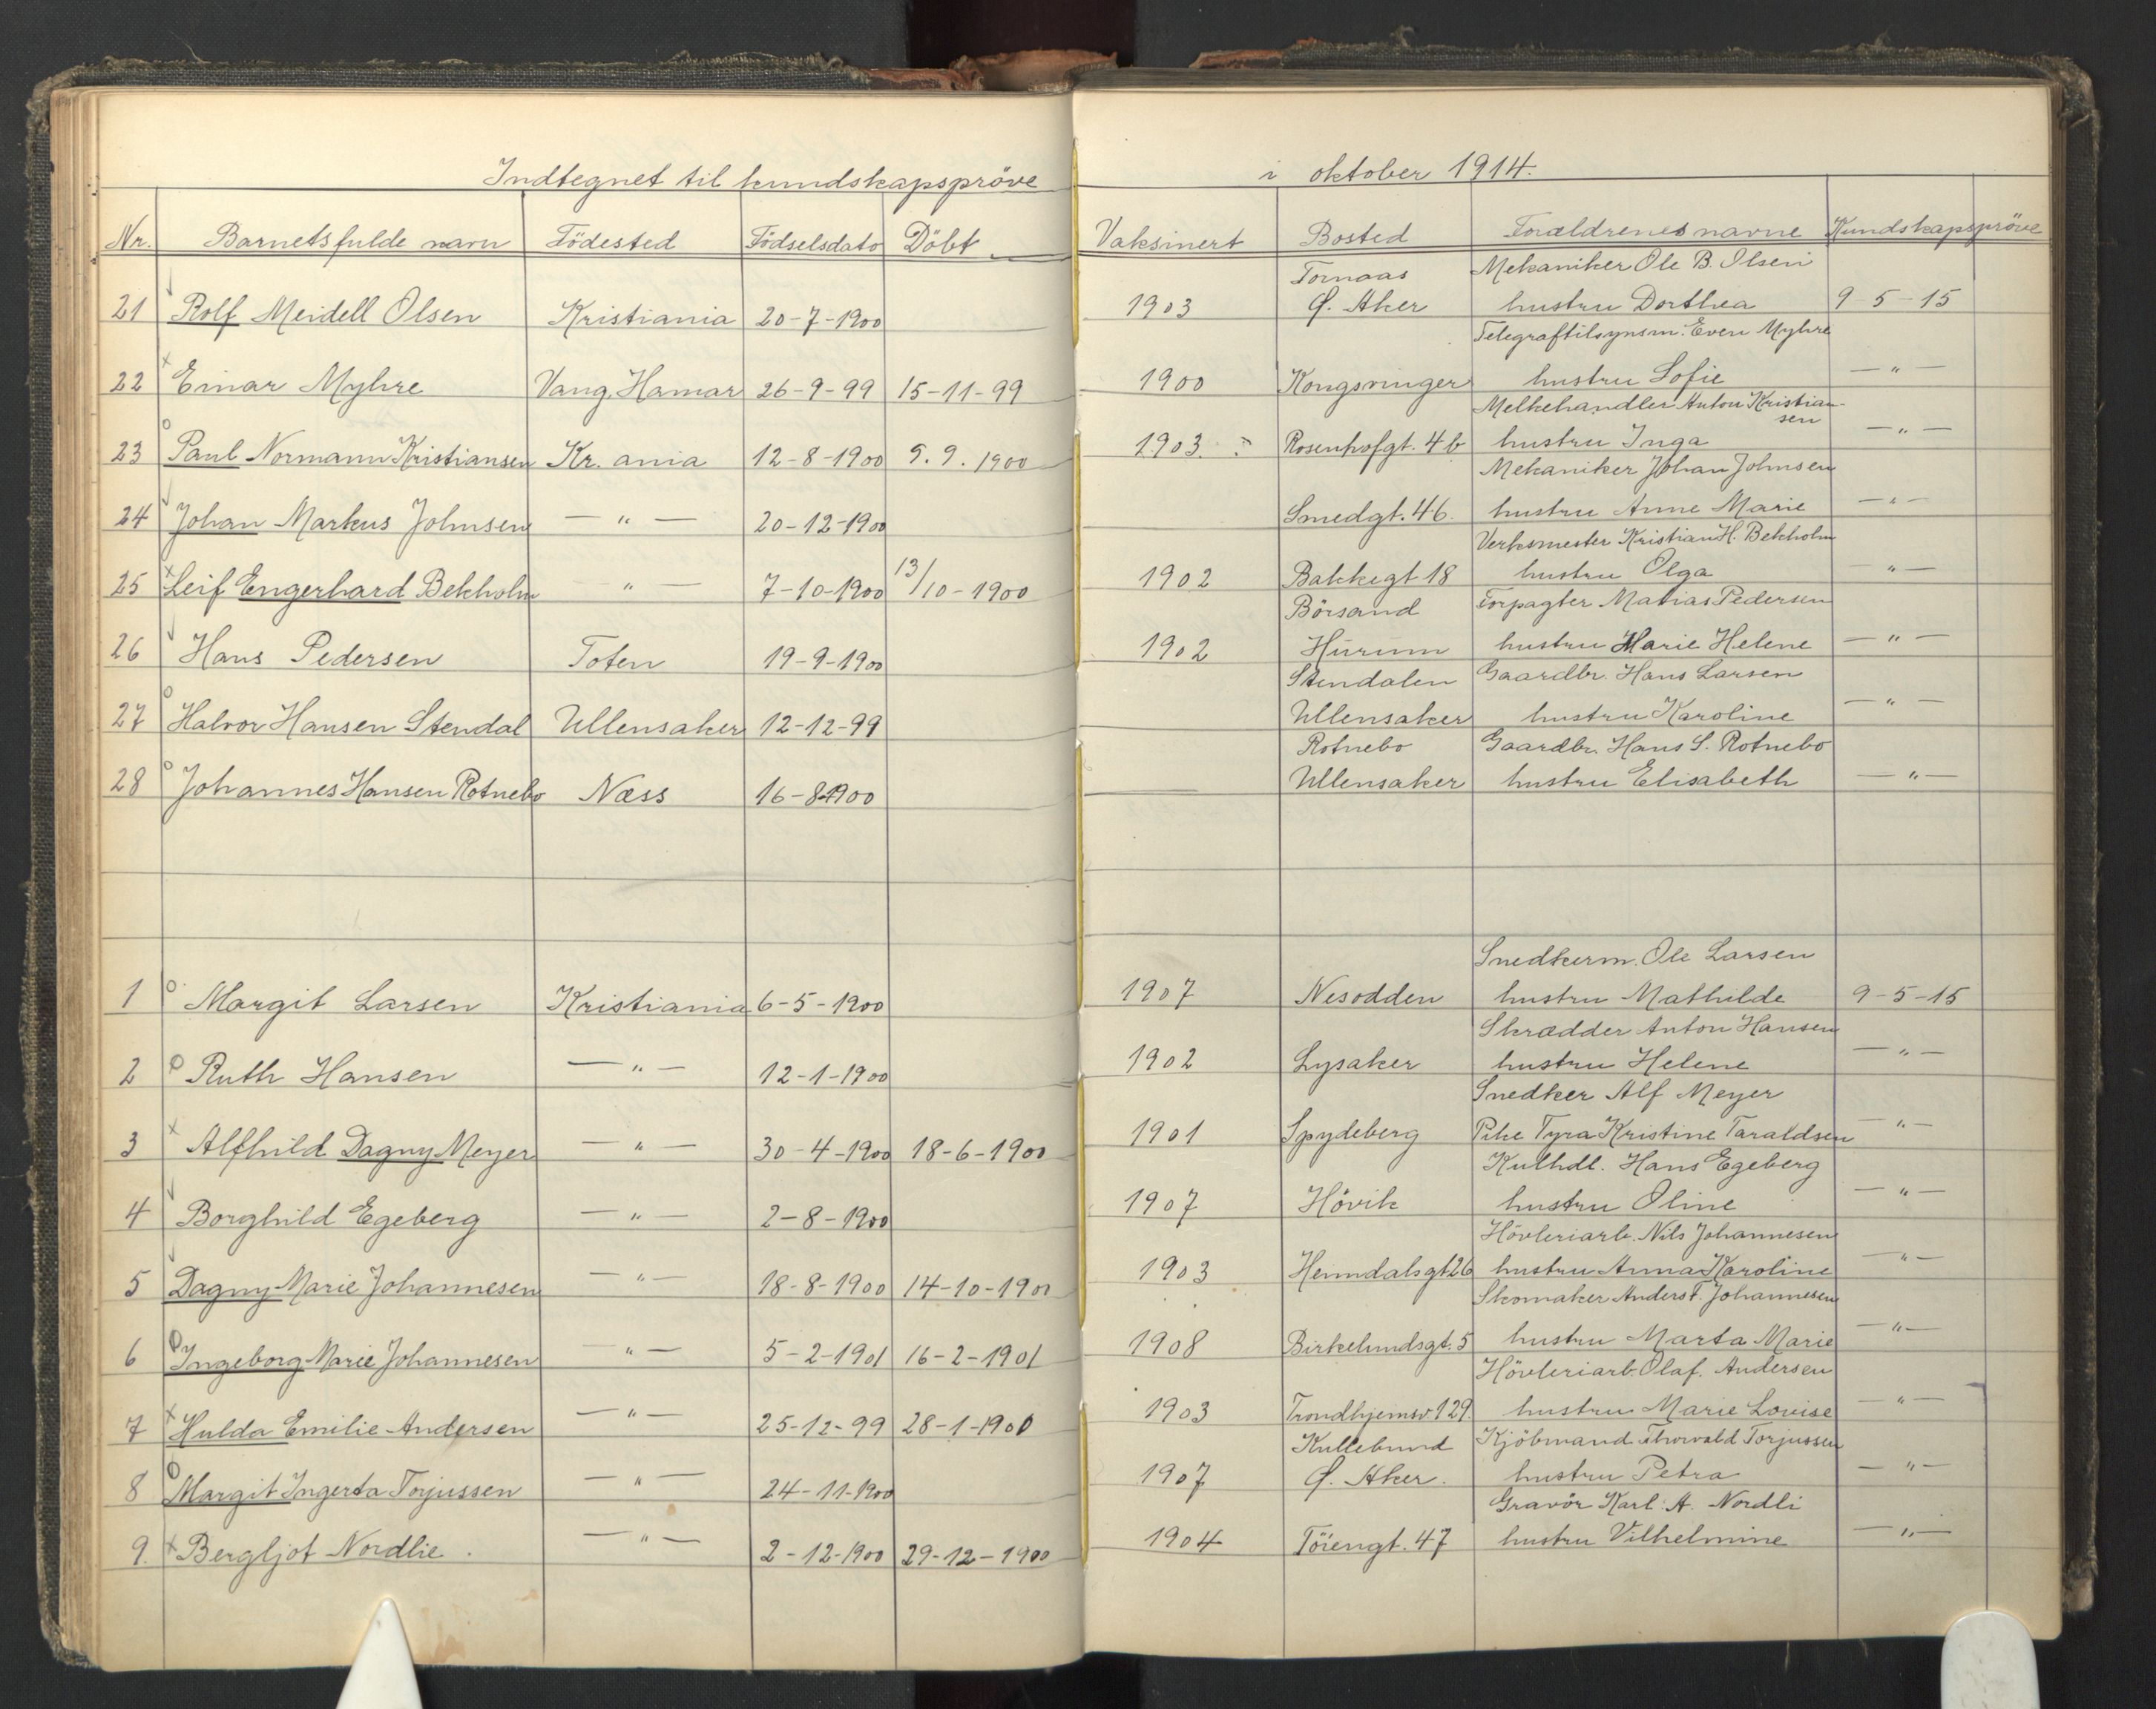 Indtegnet til kundskapspröve i oktober 1914.
Nr. Barnets fulde navn Födested Födselsdato Döbt Vaksinert Bosted Forældrenes navne Kundskapspröve
Tornaas Mekaniker Ole B. Olsen
21 Rolf Meidell Olsen Kristiania 20-7-1900 1903 Ø. Aker hustru Dorthea 9-5-15
Telegraftilsynsm. Even Myhre
22 Einar Myhre Vang, Hamar 26-9-99 15-11-99 1900 Kongsvinger hustru Sofie —"—
Melkehandler Anton Kristian-
sen
23 Paul Normann Kristiansen Kr.ania 12-8-1900 9.9.1900 1903 Rosenhofgt. 4b hustru Inga —"—
Mekaniker Johan Johnsen
24 Johan Markus Johnsen —"— 20-12-1900 Smedgt. 46. hustru Anne Marie —"—
Verksmester Kristian H. Bekholm
25 Leif Engerhard Bekholm —"— 7-10-1900 13/10-1900 1902 Bakkegt 18 hustru Olga —"—
Börsand Forpagter Matias Pedersen
26 Hans Pedersen Toten 19-9-1900 1902 Hurum hustru Marie Helene —"—
Stendalen Gaardbr. Hans Larsen
27 Halvor Hansen Stendal Ullensaker 12-12-99 Ullensaker hustru Karoline —"—
Rotnebo Gaardbr. Hans S. Rotnebo
28 Johannes Hansen Rotnebo Næss 16-8-1900 Ullensaker hustru Elisabeth —"—
Snedkerm. Ole Larsen
1 Margit Larsen Kristiania 6-5-1900 1907 Nesodden hustru Mathilde 9-5-15
Skrædder Anton Hansen
2 Ruth Hansen —"— 12-1-1900 1902 Lysaker hustru Helene —"—
Snedker Alf Meyer
3 Alfhild Dagny Meyer —"— 30-4-1900 18-6-1900 1901 Spydeberg Pike Tyra Kristine Taraldsen —"—
Kulhdl. Hans Egeberg
4 Borghild Egeberg —"— 2-8-1900 1907 Hövik hustru Oline —"—
Hövleriarb. Nils Johannesen
5 Dagny Marie Johannesen —"— 18-8-1900 14-10-1900 1903 Heimdalsgt 26 hustru Anna Karoline —"—
Skomaker Anders F. Johannesen
6 Ingeborg Marie Johannesen —"— 5-2-1901 16-2-1901 1908 Birkelundsgt. 5 hustru Marta Marie —"—
Hövleriarb. Olaf. Andersen
7 Hulda Emilie Andersen —"— 25-12-99 28-1-1900 1903 Trondhjemsv. 129. hustru Marie Louise —"—
Kullebund Kjöbmand Thorvald Torjussen
8 Margit Ingerta Torjussen —"— 24-11-1900 1907 Ø. Aker. hustru Petra —"—
Gravör Karl A. Nordli
9. Bergljot Nordlie. —"— 2-12-1900 29-12-1900 1904 Töiengt. 47 hustru Vilhelmine —"—